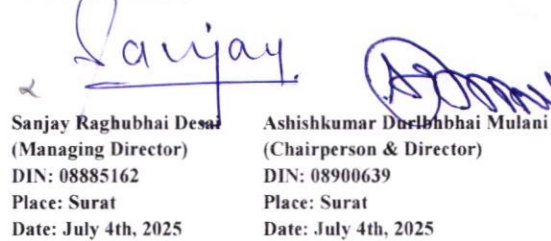 Sanjay
Sanjay Raghubhai Desai
(Managing Director)
DIN: 08885162
Place: Surat
Date: July 4th, 2025
Ashishkumar Durlbhbhai Mulani
(Chairperson & Director)
DIN: 08900639
Place: Surat
Date: July 4th, 2025